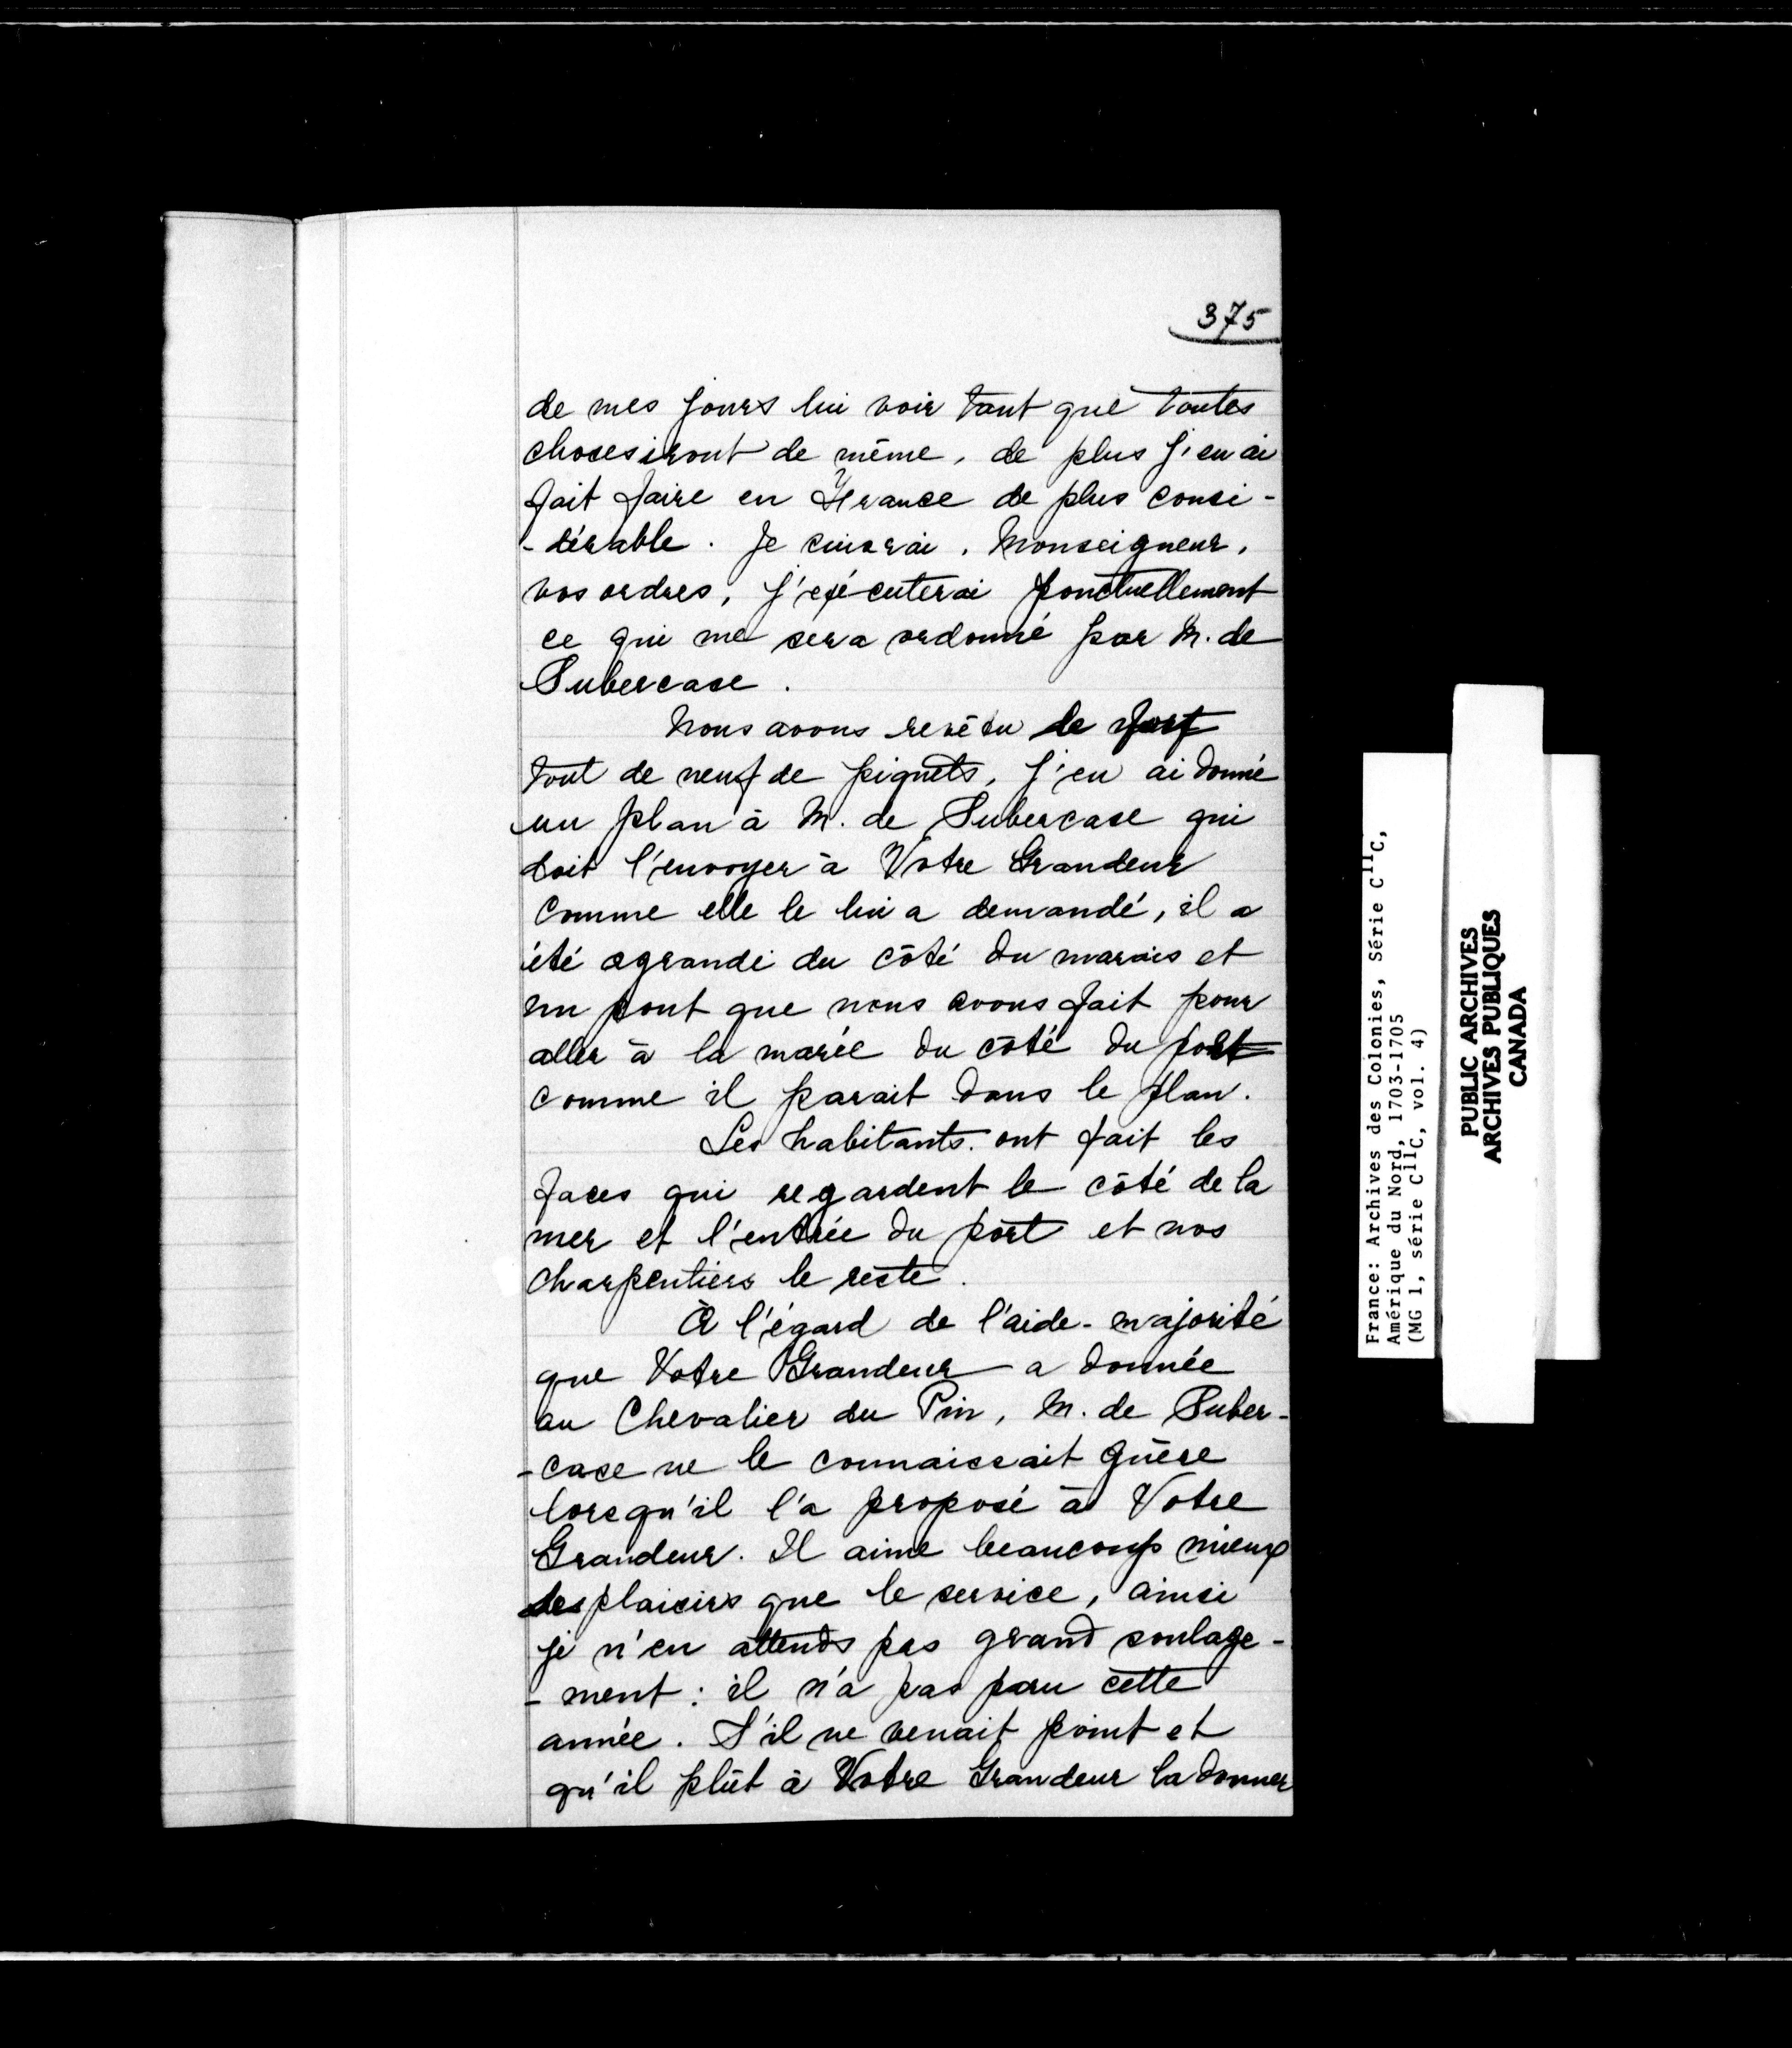 375
de mes jours lui voir tant que toutes
choses iront de même, de plus j'en ai
fait faire en France de plus consi-
-dérable. Je suivrai, Monseigneur,
vos ordres, j'exécuterai ponctuellement
ce qui me sera ordonné par M. de
Subercase.
Nous avons revêtu le fort
tout de neuf de piquets, j'en ai donné
un plan à M. de Subercase qui
doit l'envoyer à Votre Grandeur
comme elle le lui a demandé, il a
été agrandi du côté du marais et
un pont que nous avons fait pour
aller à la marée du côté du port
comme il parait dans le plan.
Les habitants ont fait les
faces qui regardent le côté de la
mer et l'entrée du port et nos
charpentiers le reste.
À l'égard de l'aide-majorité
que Votre Grandeur a donnée
au Chevalier du Pin, M. de Suber-
-case ne le connaissait guère
lorsqu'il l'a proposé à Votre
Grandeur. Il aime beaucoup mieux
les plaisirs que le service, ainsi
je n'en attends pas grand soulage-
-ment : il n'a pas paru cette
année. S'il ne venait point et
qu'il plût à Votre Grandeur la donner
France: Archives des Colonies, série C11C,
Amérique du Nord, 1703-1705
(MG 1, série C11C, vol. 4)
PUBLIC ARCHIVES
ARCHIVES PUBLIQUES
CANADA